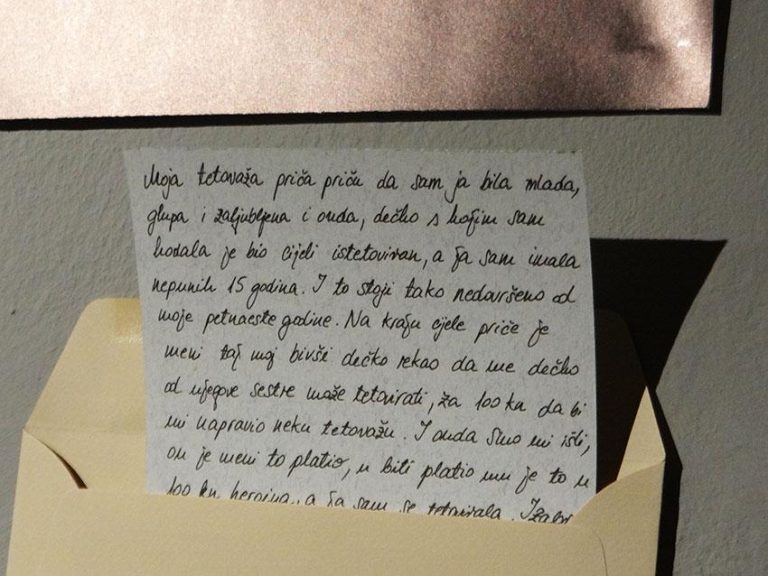 Moja tetovaža priča priču da sam ja bila mlada,
glupa i zaljubljena i onda, dečko s kojim sam
hodala je bio cijeli istetoviran, a ja sam imala
nepunih 15 godina. I to stoji tako nedovršeno od
moje petnaeste godine. Na kraju cijele priče je
meni taj moj bivši dečko rekao da me dečko
od njegove sestre može tetovirati, za 100 kn da bi
mi napravio neku tetovažu. I onda smo mi išli,
on je meni to platio, u biti platio mu je to u
100 kn heroina, a ja sam se tetovirala.